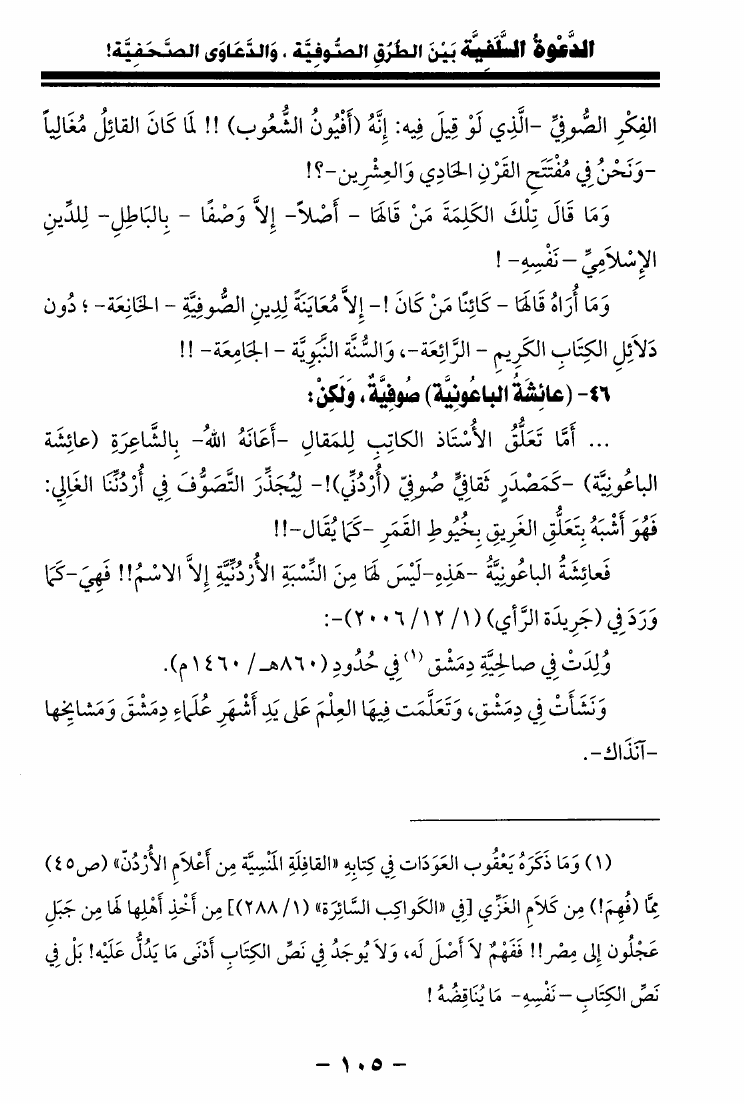 الدَّعْوَةُ السَّلَفِيَّة بَيْنَ الطُّرُقِ الصُّوفِيَّة ، وَالدَّعَاوَى الصَّحَفِيَّة!
الفِكْرِ الصُّوفِيِّ -الَّذِي لَوْ قِيلَ فِيهِ: إِنَّهُ (أَفْيُونُ الشُّعُوب) !! لَمَا كَانَ القَائِلُ مُغَالِياً
-وَنَحْنُ فِي مُفْتَتَحِ القَرْنِ الحَادِي وَالعِشْرِين-؟!
وَمَا قَالَ تِلْكَ الكَلِمَةَ مَنْ قَالَهَا - أَصْلاً- إِلاَّ وَصْفًا - بِالبَاطِلِ- لِلدِّينِ
الإِسْلاَمِيِّ – نَفْسِهِ- !
وَمَا أُرَاهُ قَالَهَا - كَائِنًا مَنْ كَانَ !- إِلاَّ مُعَايَنَةً لِدِينِ الصُّوفِيَّةِ - الخَانِعَة- ؛ دُون
دَلاَئِلِ الكِتَابِ الكَرِيم - الرَّائِعَة-، وَالسُّنَّة النَّبَوِيَّة - الجَامِعَة- !!
٤٦- (عائِشَةُ الباعُونِيَّة) صُوفِيَّةٌ، وَلَكِنْ:
... أَمَّا تَعَلُّقُ الأُسْتَاذ الكاتِبِ لِلمَقالِ -أَعَانَهُ اللهُ- بِالشَّاعِرَةِ (عائِشَة
الباعُونِيَّة) -كَمَصْدَرٍ ثَقافِيٍّ صُوفِيّ (أُرْدُنِّي)!- لِيُجَذِّرَ التَّصَوُّفَ فِي أُرْدُنِّنَا الغَالِي:
فَهُوَ أَشْبَهُ بِتَعَلُّقِ الغَرِيق بِخُيُوطِ القَمَرِ -كَمَا يُقَال-!!
فَعائِشَةُ الباعُونِيَّةُ -هَذِهِ-لَيْسَ لَهَا مِنَ النِّسْبَةِ الأُرْدُنِّيَّةِ إِلاَّ الاسْمُ!! فَهِيَ-كَمَا
وَرَدَ فِي (جَرِيدَة الرَّأي) (١/ ١٢/ ٢٠٠٦)-:
وُلِدَتْ فِي صالحِيَّةِ دِمَشْق (١) فِي حُدُودِ (٨٦٠هـ/ ١٤٦٠م).
وَنَشَأَتْ فِي دِمَشْق، وَتَعَلَّمَت فِيهَا العِلْمَ عَلَى يَدِ أَشْهَرِ عُلَمَاءِ دِمَشْقَ وَمَشايِخِها
-آنَذَاك-.
(١) وَمَا ذَكَرَهُ يَعْقُوب العَوَدَات فِي كِتابِهِ «القافِلَةِ المَنْسِيَّة مِن أَعْلاَمِ الأُرْدُنّ» (ص٤٥)
مِمَّا (فُهِمَ!) مِن كَلاَمِ الغَزِّي [فِي «الكَواكِب السَّائِرَة» (١/ ٢٨٨)] مِن أَخْذِ أَهْلِها لَهَا مِن جَبَلِ
عَجْلُون إِلَى مِصْر!! فَفَهْمٌ لاَ أَصْلَ لَه، وَلاَ يُوجَدُ فِي نَصِّ الكِتَابِ أَدْنَى مَا يَدُلُّ عَلَيْه! بَلْ فِي
نَصِّ الكِتَابِ – نَفْسِهِ- مَا يُنَاقِضُهُ !
- ١٠٥ -